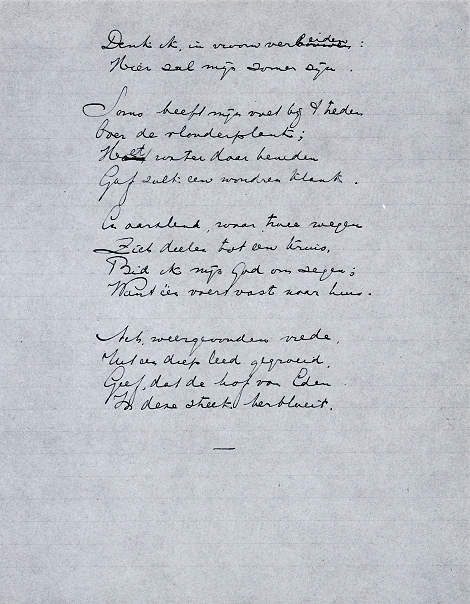 Denk ik, in vroom verbeiden:
Hier zal mijn zomer zijn.
Soms heeft mijn voet bij 't treden
Over de vlonderplank;
Het water daar beneden
Gaf zulk een wondren klank.
En aarzlend, waar twee wegen
Zich deelen tot een kruis,
Bid ik mijn God om zegen;
Want één voert vast naar huis.
Ach, weergevonden vrede,
Uit een diep leed gegroeid,
Geef, dat de hof van Eden
In deze streek herbloeit.